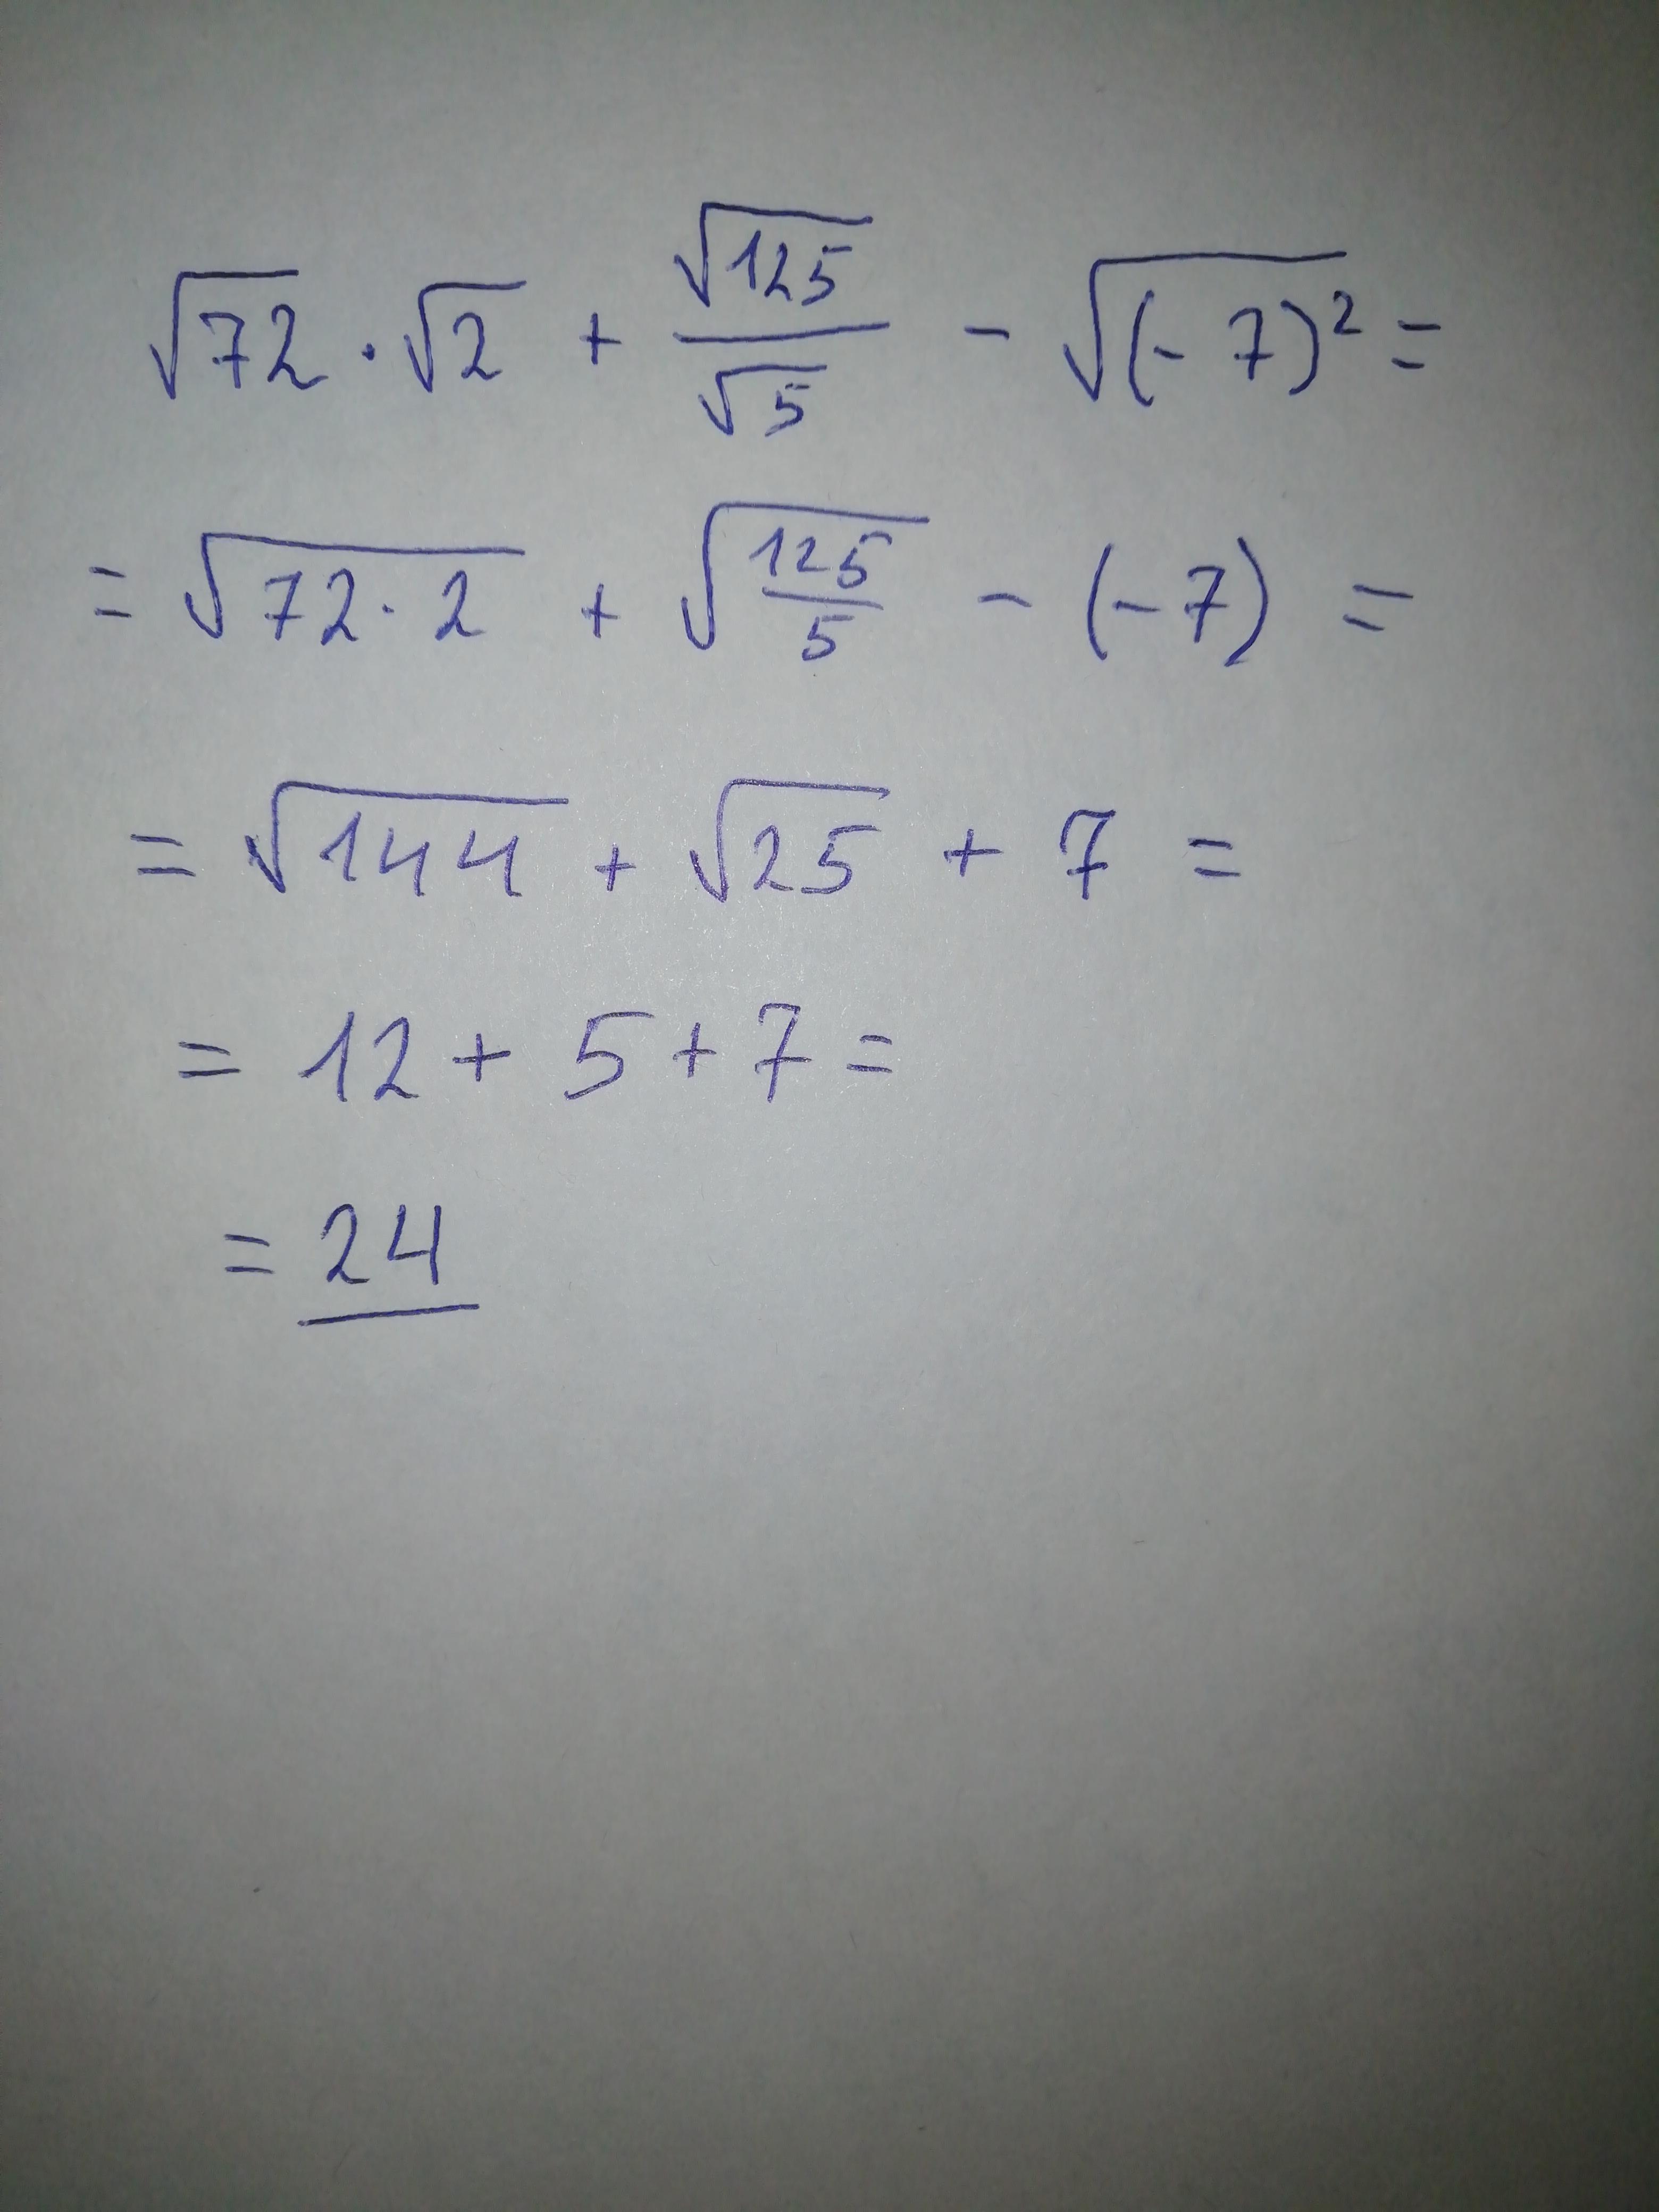 √72 · √2 + √125/√5 - √(-7)² =
= √72·2 + √125/5 - (-7) =
= √144 + √25 + 7 =
= 12 + 5 + 7 =
= 24